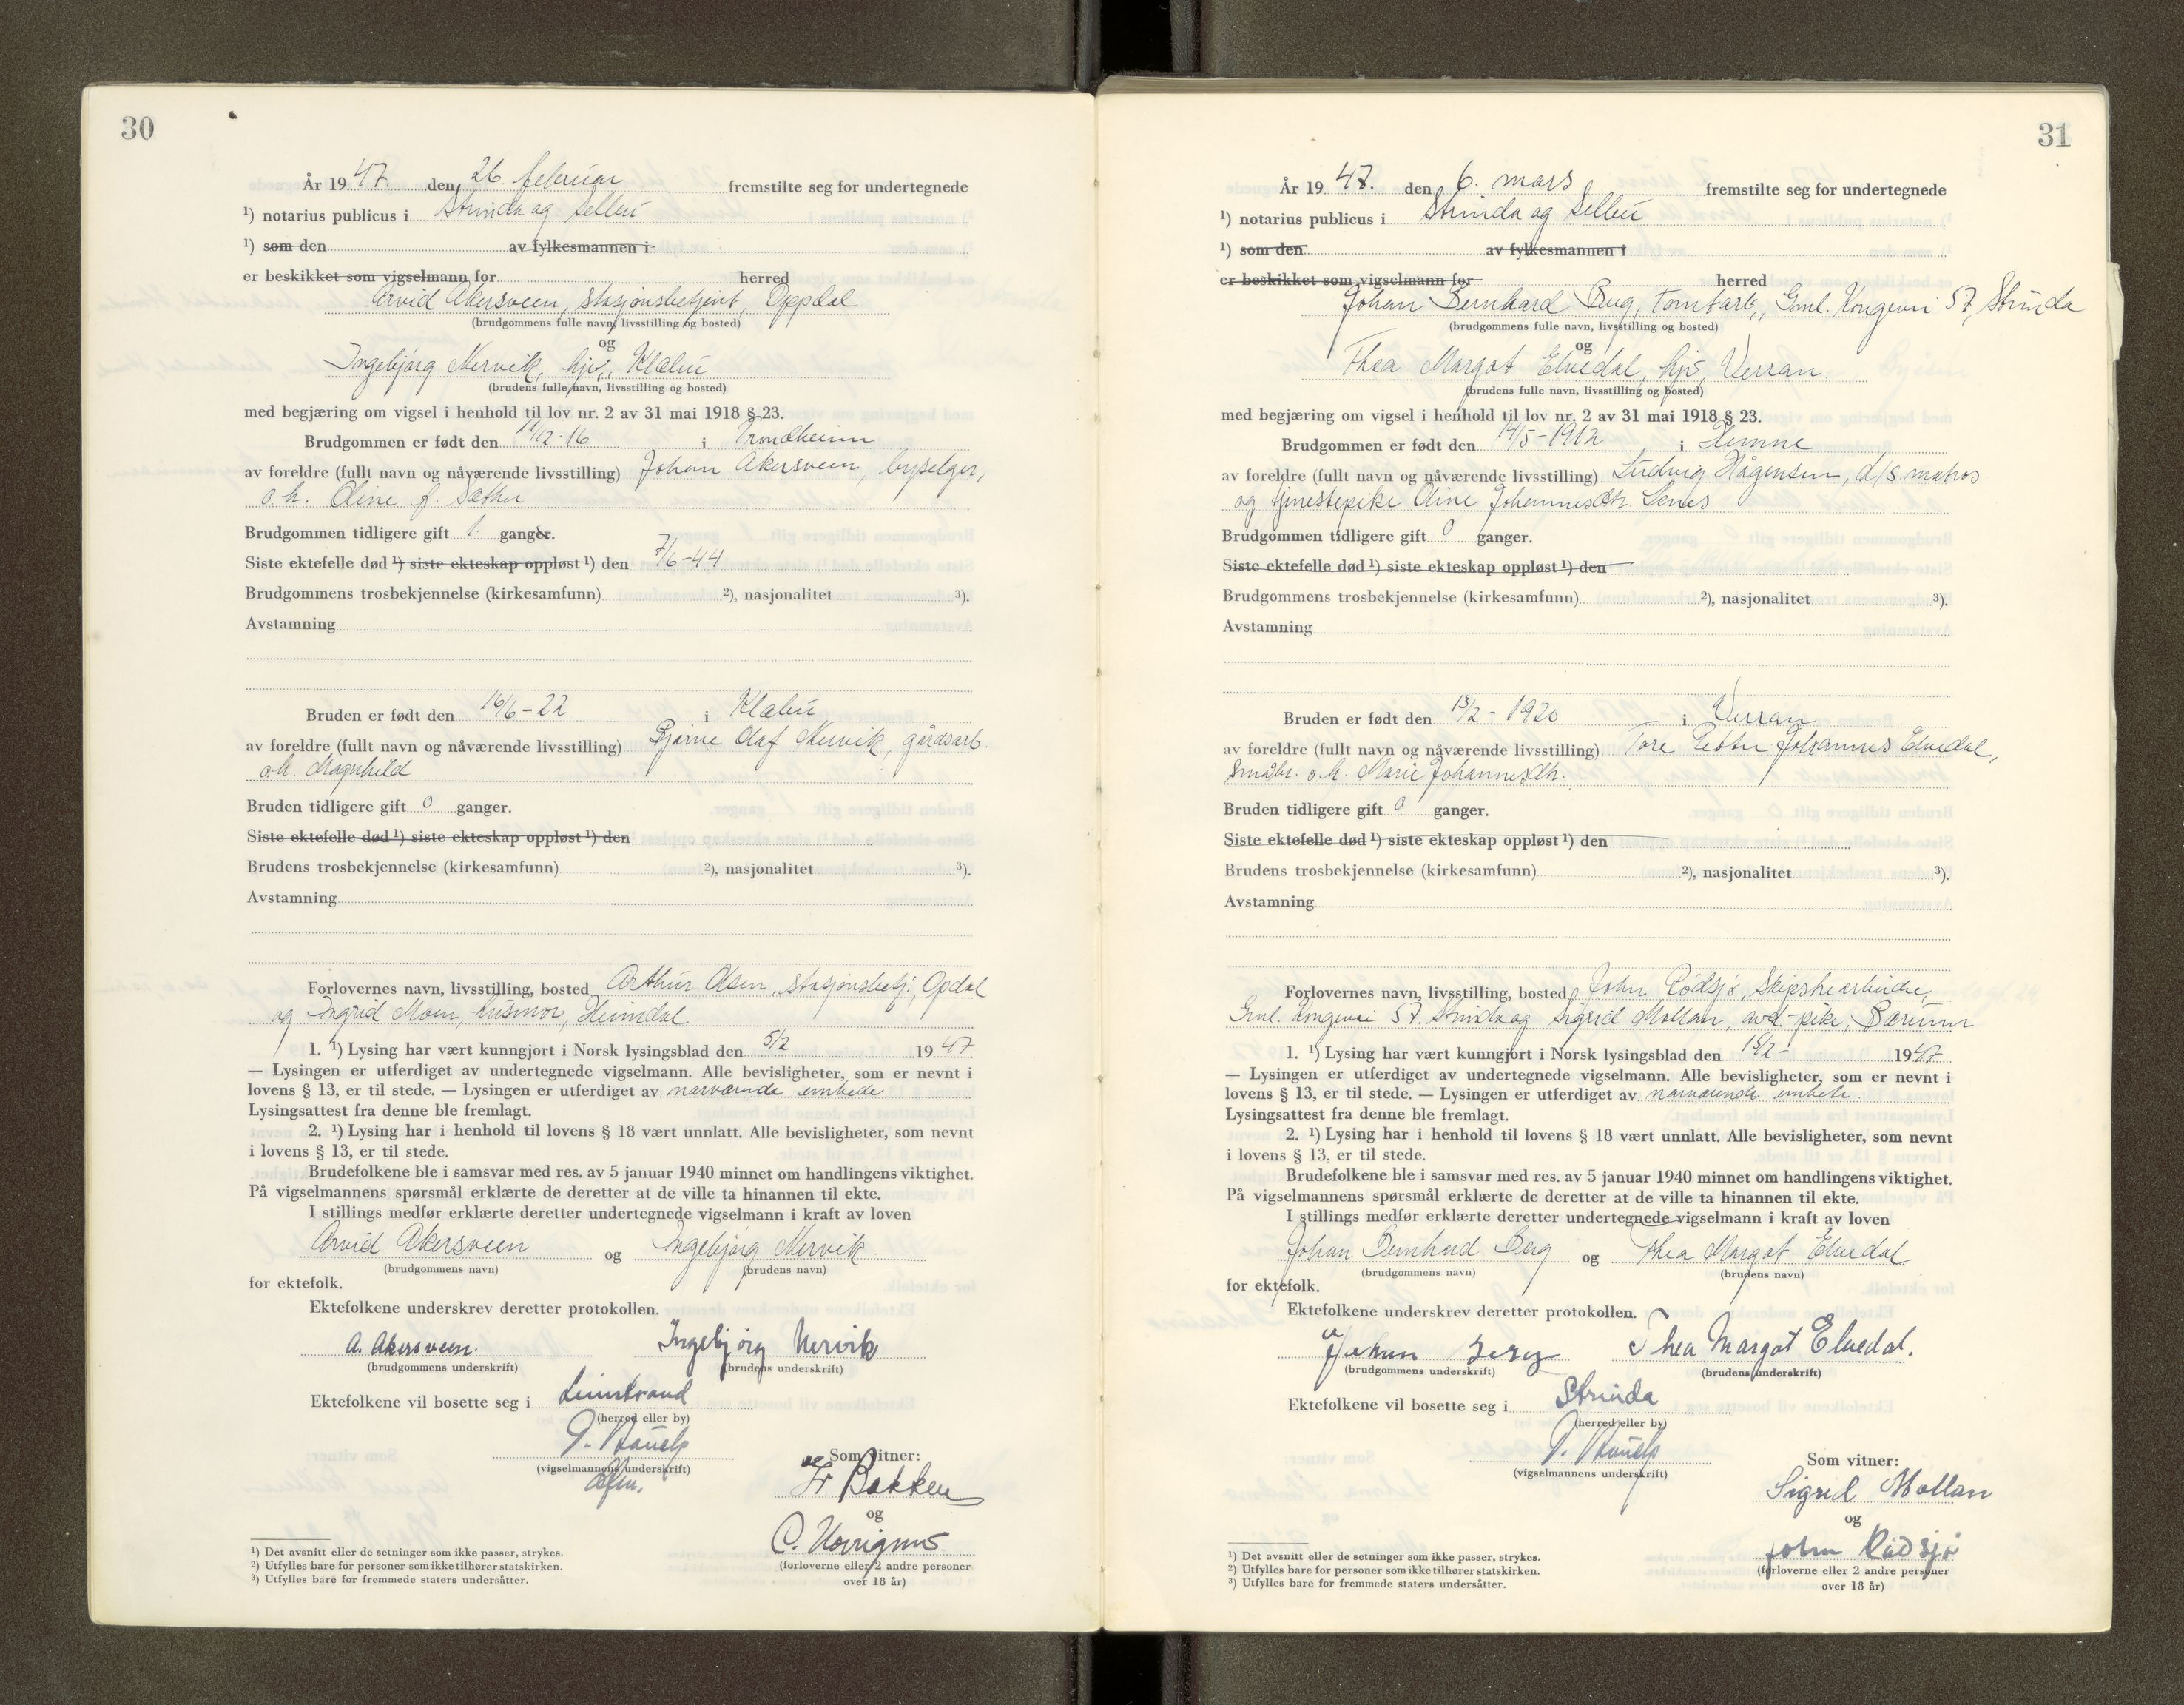 30
År 1947. den 26. februar fremstilte seg for undertegnede
¹) notarius publicus i Strinda og Selbu
¹) som den av fylkesmannen i
er beskikket som vigselmann for herred
Arvid Akersveen, stasjonsbetjent, Oppdal
(brudgommens fulle navn, livsstilling og bosted)
og
Ingebjørg Nervik, hjv., Klæbu
(brudens fulle navn, livsstilling og bosted)
med begjæring om vigsel i henhold til lov nr. 2 av 31 mai 1918 § 23.
Brudgommen er født den /12-16 i Trondheim
av foreldre (fullt navn og nåværende livsstilling) Johan Akersveen, byselger,
o.h. Oline f. Sæther
Brudgommen tidligere gift 1. ganger.
Siste ektefelle død ¹) siste ekteskap oppløst ¹) den 7/6-44
Brudgommens trosbekjennelse (kirkesamfunn) ²), nasjonalitet ³).
Avstamning
Bruden er født den 16/6-22 i Klæbu
av foreldre (fullt navn og nåværende livsstilling) Bjarne Olaf Nervik, gårdsarb.
o.h. Magnhild
Bruden tidligere gift 0 ganger.
Siste ektefelle død ¹) siste ekteskap oppløst ¹) den
Brudens trosbekjennelse (kirkesamfunn) ²), nasjonalitet ³).
Avstamning
Forlovernes navn, livsstilling, bosted Arthur Olsen, stasjonsbetj., Opdal
og Ingrid Moen, husmor, Heimdal
1. ¹) Lysing har vært kunngjort i Norsk lysingsblad den 5/2 1947
— Lysingen er utferdiget av undertegnede vigselmann. Alle bevisligheter, som er nevnt i
lovens § 13, er til stede. — Lysingen er utferdiget av nærværende embede
Lysingsattest fra denne ble fremlagt.
2. ¹) Lysing har i henhold til lovens § 18 vært unnlatt. Alle bevisligheter, som nevnt
i lovens § 13, er til stede.
Brudefolkene ble i samsvar med res. av 5 januar 1940 minnet om handlingens viktighet.
På vigselmannens spørsmål erklærte de deretter at de ville ta hinannen til ekte.
I stillings medfør erklærte deretter undertegnede vigselmann i kraft av loven
Arvid Akersveen og Ingebjørg Nervik
(brudgommens navn) (brudens navn)
for ektefolk.
Ektefolkene underskrev deretter protokollen.
A. Akersveen. Ingebjørg Nervik
(brudgommens underskrift) (brudens underskrift)
Ektefolkene vil bosette seg i Leinstrand
(herred eller by)
(vigselmannens underskrift)
Som vitner:
Bakken
og
C.
(forloverne eller 2 andre personer
over 18 år)
¹) Det avsnitt eller de setninger som ikke passer, strykes.
²) Utfylles bare for personer som ikke tilhører statskirken.
³) Utfylles bare for fremmede staters undersåtter.
31
År 1947. den 6. mars fremstilte seg for undertegnede
¹) notarius publicus i Strinda og Selbu
¹) som den av fylkesmannen i
er beskikket som vigselmann for herred
Johan Bernhard Berg, tomtarb., Gml. Kongevei 57, Strinda
(brudgommens fulle navn, livsstilling og bosted)
og
Thea Margot Elvedal, hjv., Verran
(brudens fulle navn, livsstilling og bosted)
med begjæring om vigsel i henhold til lov nr. 2 av 31 mai 1918 § 23.
Brudgommen er født den 14/5-1912 i Hemne
av foreldre (fullt navn og nåværende livsstilling) Ludvig Hågensen, d/s. matros
og tjenestepike Oline Johannesdtr. Lenes
Brudgommen tidligere gift 0 ganger.
Siste ektefelle død ¹) siste ekteskap oppløst ¹) den
Brudgommens trosbekjennelse (kirkesamfunn) ²), nasjonalitet ³).
Avstamning
Bruden er født den 13/2-1920 i Verran
av foreldre (fullt navn og nåværende livsstilling) Tore Petter Johannes Elvedal,
småbr. o.h. Marie Johannesdtr.
Bruden tidligere gift 0 ganger.
Siste ektefelle død ¹) siste ekteskap oppløst ¹) den
Brudens trosbekjennelse (kirkesamfunn) ²), nasjonalitet ³).
Avstamning
Forlovernes navn, livsstilling, bosted John Rödsjö, Skipstrearbeider,
Gml. Kongevei 57. Strinda og Sigrid Mollan, avd.-pike, Bærum
1. ¹) Lysing har vært kunngjort i Norsk lysingsblad den 18/2- 1947
— Lysingen er utferdiget av undertegnede vigselmann. Alle bevisligheter, som er nevnt i
lovens § 13, er til stede. — Lysingen er utferdiget av nærværende embete.
Lysingsattest fra denne ble fremlagt.
2. ¹) Lysing har i henhold til lovens § 18 vært unnlatt. Alle bevisligheter, som nevnt
i lovens § 13, er til stede.
Brudefolkene ble i samsvar med res. av 5 januar 1940 minnet om handlingens viktighet.
På vigselmannens spørsmål erklærte de deretter at de ville ta hinannen til ekte.
I stillings medfør erklærte deretter undertegnede vigselmann i kraft av loven
Johan Bernhard Berg og Thea Margot Elvedal
(brudgommens navn) (brudens navn)
for ektefolk.
Ektefolkene underskrev deretter protokollen.
Johan Berg Thea Margot Elvedal.
(brudgommens underskrift) (brudens underskrift)
Ektefolkene vil bosette seg i Strinda
(herred eller by)
(vigselmannens underskrift)
Som vitner:
Sigrid Mollan
og
John Rödsjö
(forloverne eller 2 andre personer
over 18 år)
¹) Det avsnitt eller de setninger som ikke passer, strykes.
²) Utfylles bare for personer som ikke tilhører statskirken.
³) Utfylles bare for fremmede staters undersåtter.